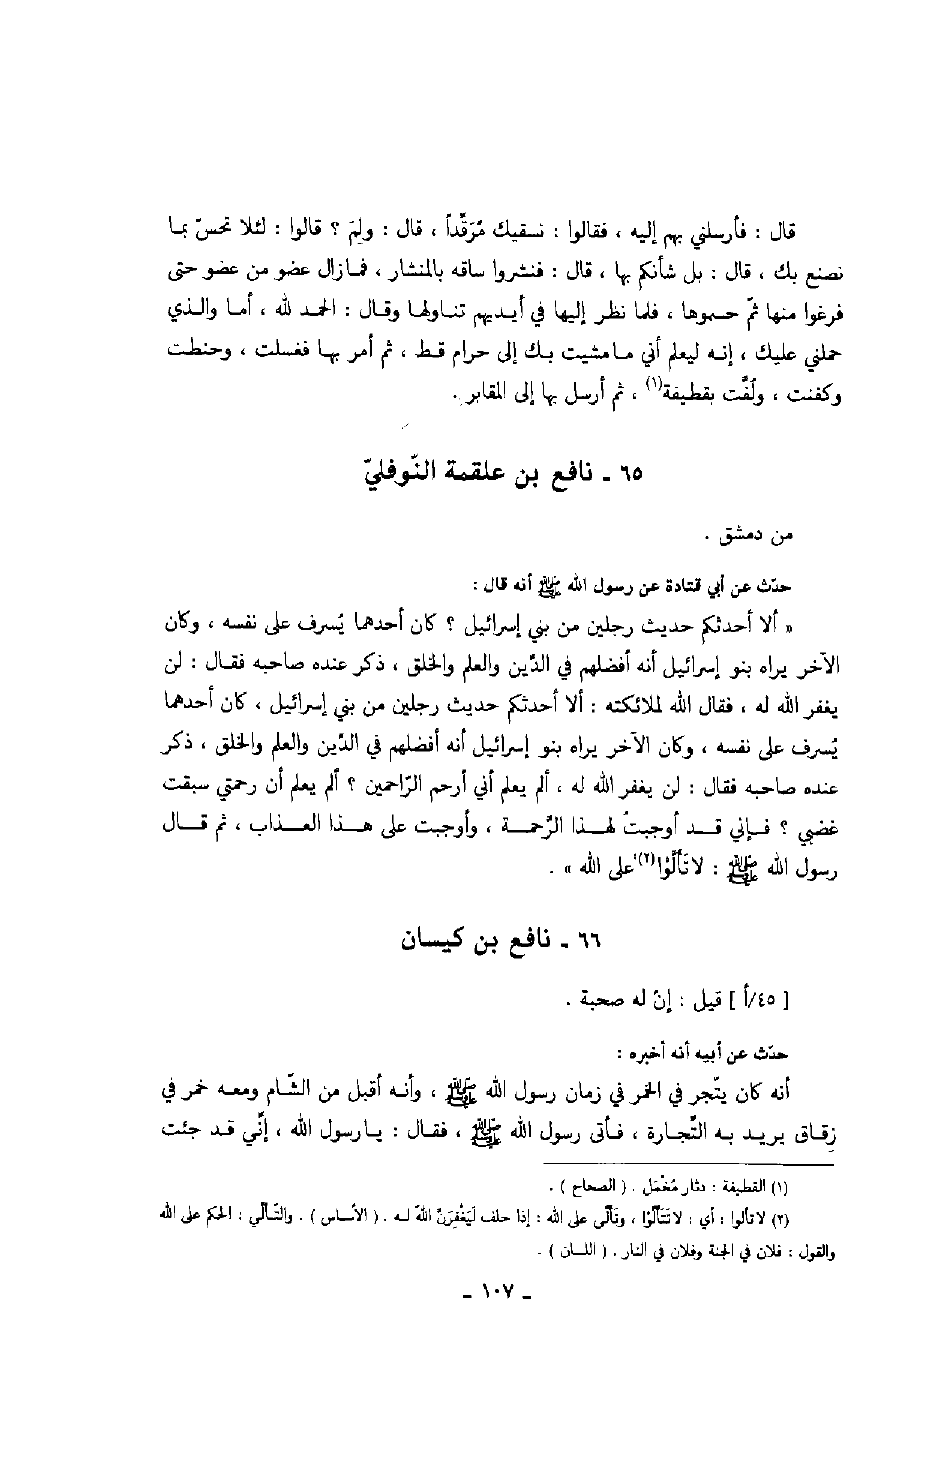 قال : فأرسلني بهم إليه ، فقالوا : نسقيك مُرَقِّداً ، قال : ولِمَ ؟ قالوا : لئلا تحسّ بما
نصنع بك ، قال : بل شأنكم بها ، قال : فنشروا ساقه بالمنشار ، فمازال عضو من عضو حتى
فرغوا منها ثمّ حسموها ، فلما نظر إليها في أيديهم تناولها وقال : الحمد لله ، أما والذي
حملني عليك ، إنه ليعلم أني مامشيت بك إلى حرام قط ، ثم أمر بها فغسلت ، وحنطت
وكفنت ، ولُفَّت بقطيفة(١) ، ثم أرسل بها إلى المقابر .
٦٥ ـ نافع بن علقمة النّوفليّ
من دمشق .
حدّث عن أبي قتادة عن رسول الله ﷺ أنه قال :
« ألا أحدثكم حديث رجلين من بني إسرائيل ؟ كان أحدهما يُسرف على نفسه ، وكان
الآخر يراه بنو إسرائيل أنه أفضلهم في الدّين والعلم والخلق ، ذكر عنده صاحبه فقال : لن
يغفر الله له ، فقال الله لملائكته : ألا أحدثكم حديث رجلين من بني إسرائيل ، كان أحدهما
يُسرف على نفسه ، وكان الآخر يراه بنو إسرائيل أنه أفضلهم في الدّين والعلم والخلق ، ذكر
عنده صاحبه فقال : لن يغفر الله له ، ألم يعلم أني أرحم الرّاحمين ؟ ألم يعلم أن رحمتي سبقت
غضبي ؟ فإني قد أوجبتُ لهذا الرَّحمة ، وأوجبت على هذا العذاب ، ثم قال
رسول الله ﷺ : لا تَألَّوْا(٢) على الله » .
٦٦ ـ نافع بن كيسان
[ ٤٥/أ ] قيل : إنّ له صحبة .
حدّث عن أبيه أنه أخبره :
أنه كان يتّجر في الخمر في زمان رسول الله ﷺ ، وأنه أقبل من الشّام ومعه خمر في
زقاق يريد به التِّجارة ، فأتى رسول الله ﷺ ، فقال : يارسول الله ، إنّي قد جئت
(١) القطيفة : دثار مُخْمَل . ( الصحاح ) .
(٢) لا تألوا : أي : لا تَتَألَّوْا ، وتألّى على الله : إذا حلف لَيَغْفِرَنَّ اللهُ له . ( الأساس ) . والتّألّي : الحكم على الله
والقول : فلان في الجنة وفلان في النار . ( اللسان ) .
ـ ١٠٧ ـ